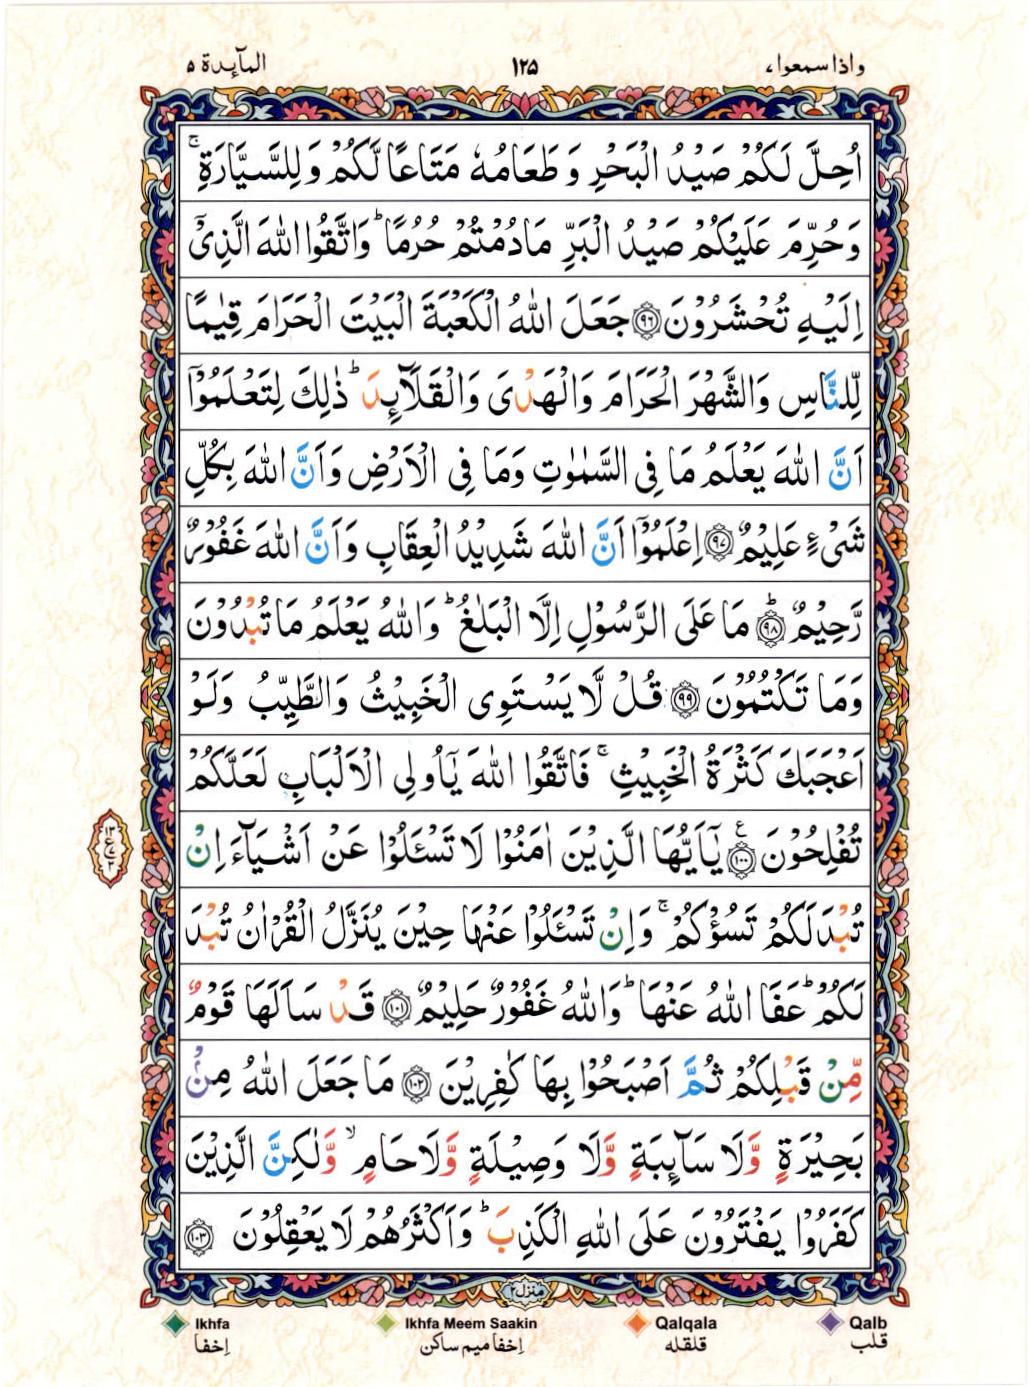 المآئدة ۵
۱۲۵
واذا سمعوا،
اُحِلَّ لَكُمْ صَيْدُ الْبَحْرِ وَ طَعَامُهٗ مَتَاعًا لَّكُمْ وَ لِلسَّيَّارَةِ ۚ
وَ حُرِّمَ عَلَيْكُمْ صَيْدُ الْبَرِّ مَا دُمْتُمْ حُرُمًا ؕ وَاتَّقُوا اللّٰهَ الَّذِیْۤ
اِلَيْهِ تُحْشَرُوْنَ ﴿۹۶﴾ جَعَلَ اللّٰهُ الْكَعْبَةَ الْبَيْتَ الْحَرَامَ قِيٰمًا
لِّلنَّاسِ وَالشَّهْرَ الْحَرَامَ وَالْهَدْیَ وَالْقَلَآئِدَ ؕ ذٰلِكَ لِتَعْلَمُوْۤا
اَنَّ اللّٰهَ يَعْلَمُ مَا فِی السَّمٰوٰتِ وَمَا فِی الْاَرْضِ وَاَنَّ اللّٰهَ بِكُلِّ
شَیْءٍ عَلِيْمٌ ﴿۹۷﴾ اِعْلَمُوْۤا اَنَّ اللّٰهَ شَدِيْدُ الْعِقَابِ وَاَنَّ اللّٰهَ غَفُوْرٌ
رَّحِيْمٌ ﴿۹۸﴾ؕ مَا عَلَی الرَّسُوْلِ اِلَّا الْبَلٰغُ ؕ وَاللّٰهُ يَعْلَمُ مَا تُبْدُوْنَ
وَمَا تَكْتُمُوْنَ ﴿۹۹﴾ قُلْ لَّا يَسْتَوِی الْخَبِيْثُ وَالطَّيِّبُ وَلَوْ
اَعْجَبَكَ كَثْرَةُ الْخَبِيْثِ ۚ فَاتَّقُوا اللّٰهَ يٰۤاُولِی الْاَلْبَابِ لَعَلَّكُمْ
تُفْلِحُوْنَ ﴿۱۰۰﴾ع يٰۤاَيُّهَا الَّذِيْنَ اٰمَنُوْا لَا تَسْـَٔلُوْا عَنْ اَشْيَآءَ اِنْ
تُبْدَ لَكُمْ تَسُؤْكُمْ ۚ وَاِنْ تَسْـَٔلُوْا عَنْهَا حِيْنَ يُنَزَّلُ الْقُرْاٰنُ تُبْدَ
لَكُمْ ؕ عَفَا اللّٰهُ عَنْهَا ؕ وَاللّٰهُ غَفُوْرٌ حَلِيْمٌ ﴿۱۰۱﴾ قَدْ سَاَلَهَا قَوْمٌ
مِّنْ قَبْلِكُمْ ثُمَّ اَصْبَحُوْا بِهَا كٰفِرِيْنَ ﴿۱۰۲﴾ مَا جَعَلَ اللّٰهُ مِنْۢ
بَحِيْرَةٍ وَّلَا سَآئِبَةٍ وَّلَا وَصِيْلَةٍ وَّلَا حَامٍ ۙ وَّلٰكِنَّ الَّذِيْنَ
كَفَرُوْا يَفْتَرُوْنَ عَلَی اللّٰهِ الْكَذِبَ ؕ وَاَكْثَرُهُمْ لَا يَعْقِلُوْنَ ﴿۱۰۳﴾
منزل ۲
Ikhfa
Ikhfa Meem Saakin
Qalqala
Qalb
إخفا
إخفا ميم ساكن
قلقله
قلب